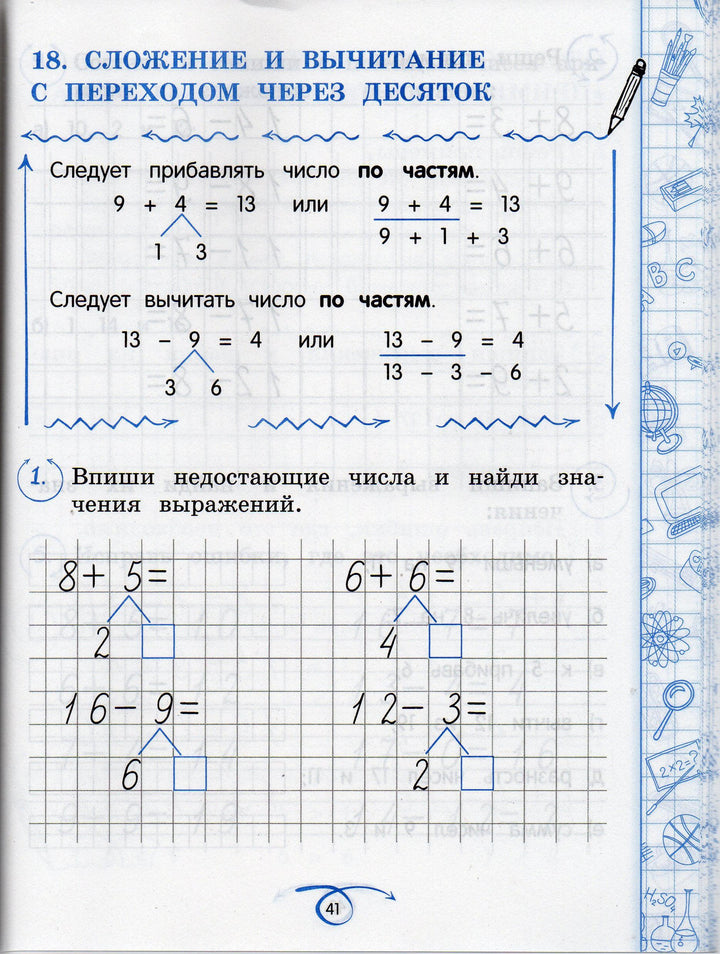 18. СЛОЖЕНИЕ И ВЫЧИТАНИЕ
С ПЕРЕХОДОМ ЧЕРЕЗ ДЕСЯТОК
Следует прибавлять число по частям.
9 + 4 = 13 или 9 + 4 = 13
9 + 1 + 3
1 3
Следует вычитать число по частям.
13 – 9 = 4 или 13 – 9 = 4
13 – 3 – 6
3 6
1. Впиши недостающие числа и найди зна-
чения выражений.
8+ 5= 6+ 6=
2 4
16– 9= 12– 3=
6 2
41
A B C
2×2=?
H₂SO₄